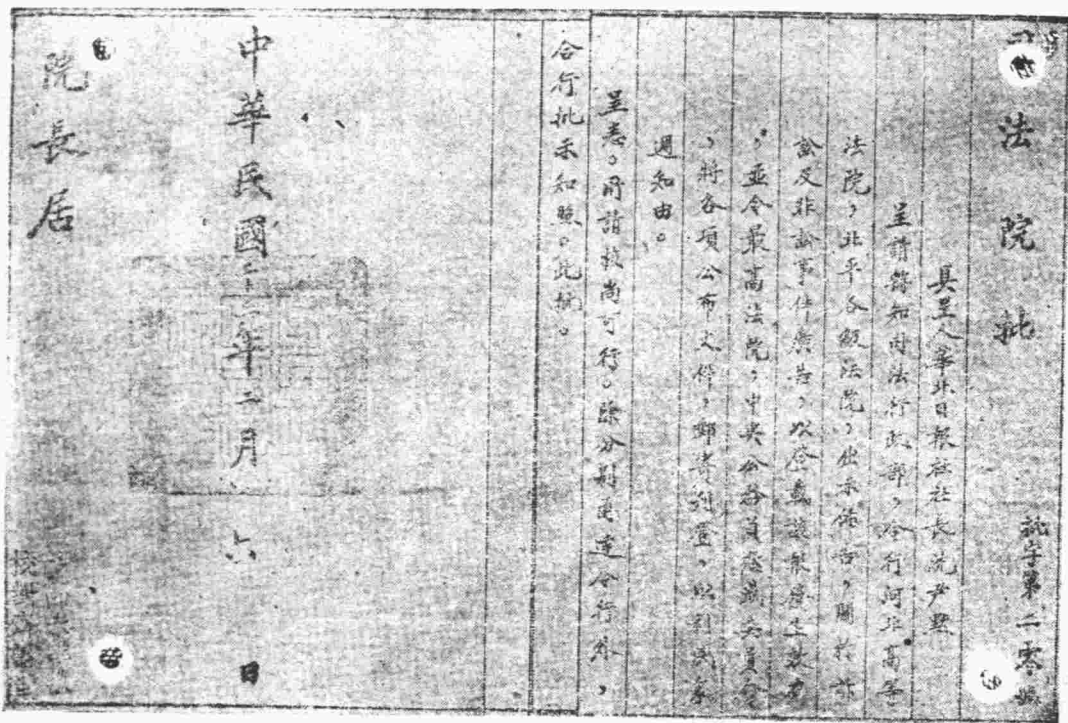 司法院批
批字第二零號
具呈人華北日報社社長沈尹默
呈請飭知司法行政部,令行河北高等
法院,北平各級法院,出示佈告,關於訴
訟及非訟事件廣告,以登載該報發生效力
,並令最高法院,中央公務員懲戒委員會
,將各項公布文件,郵寄刊登,以利民衆
週知由。
呈悉。所請核尚可行。除分別函達令行外,
合行批示知照。此批。
中華民國二十二年二月六日
院長居